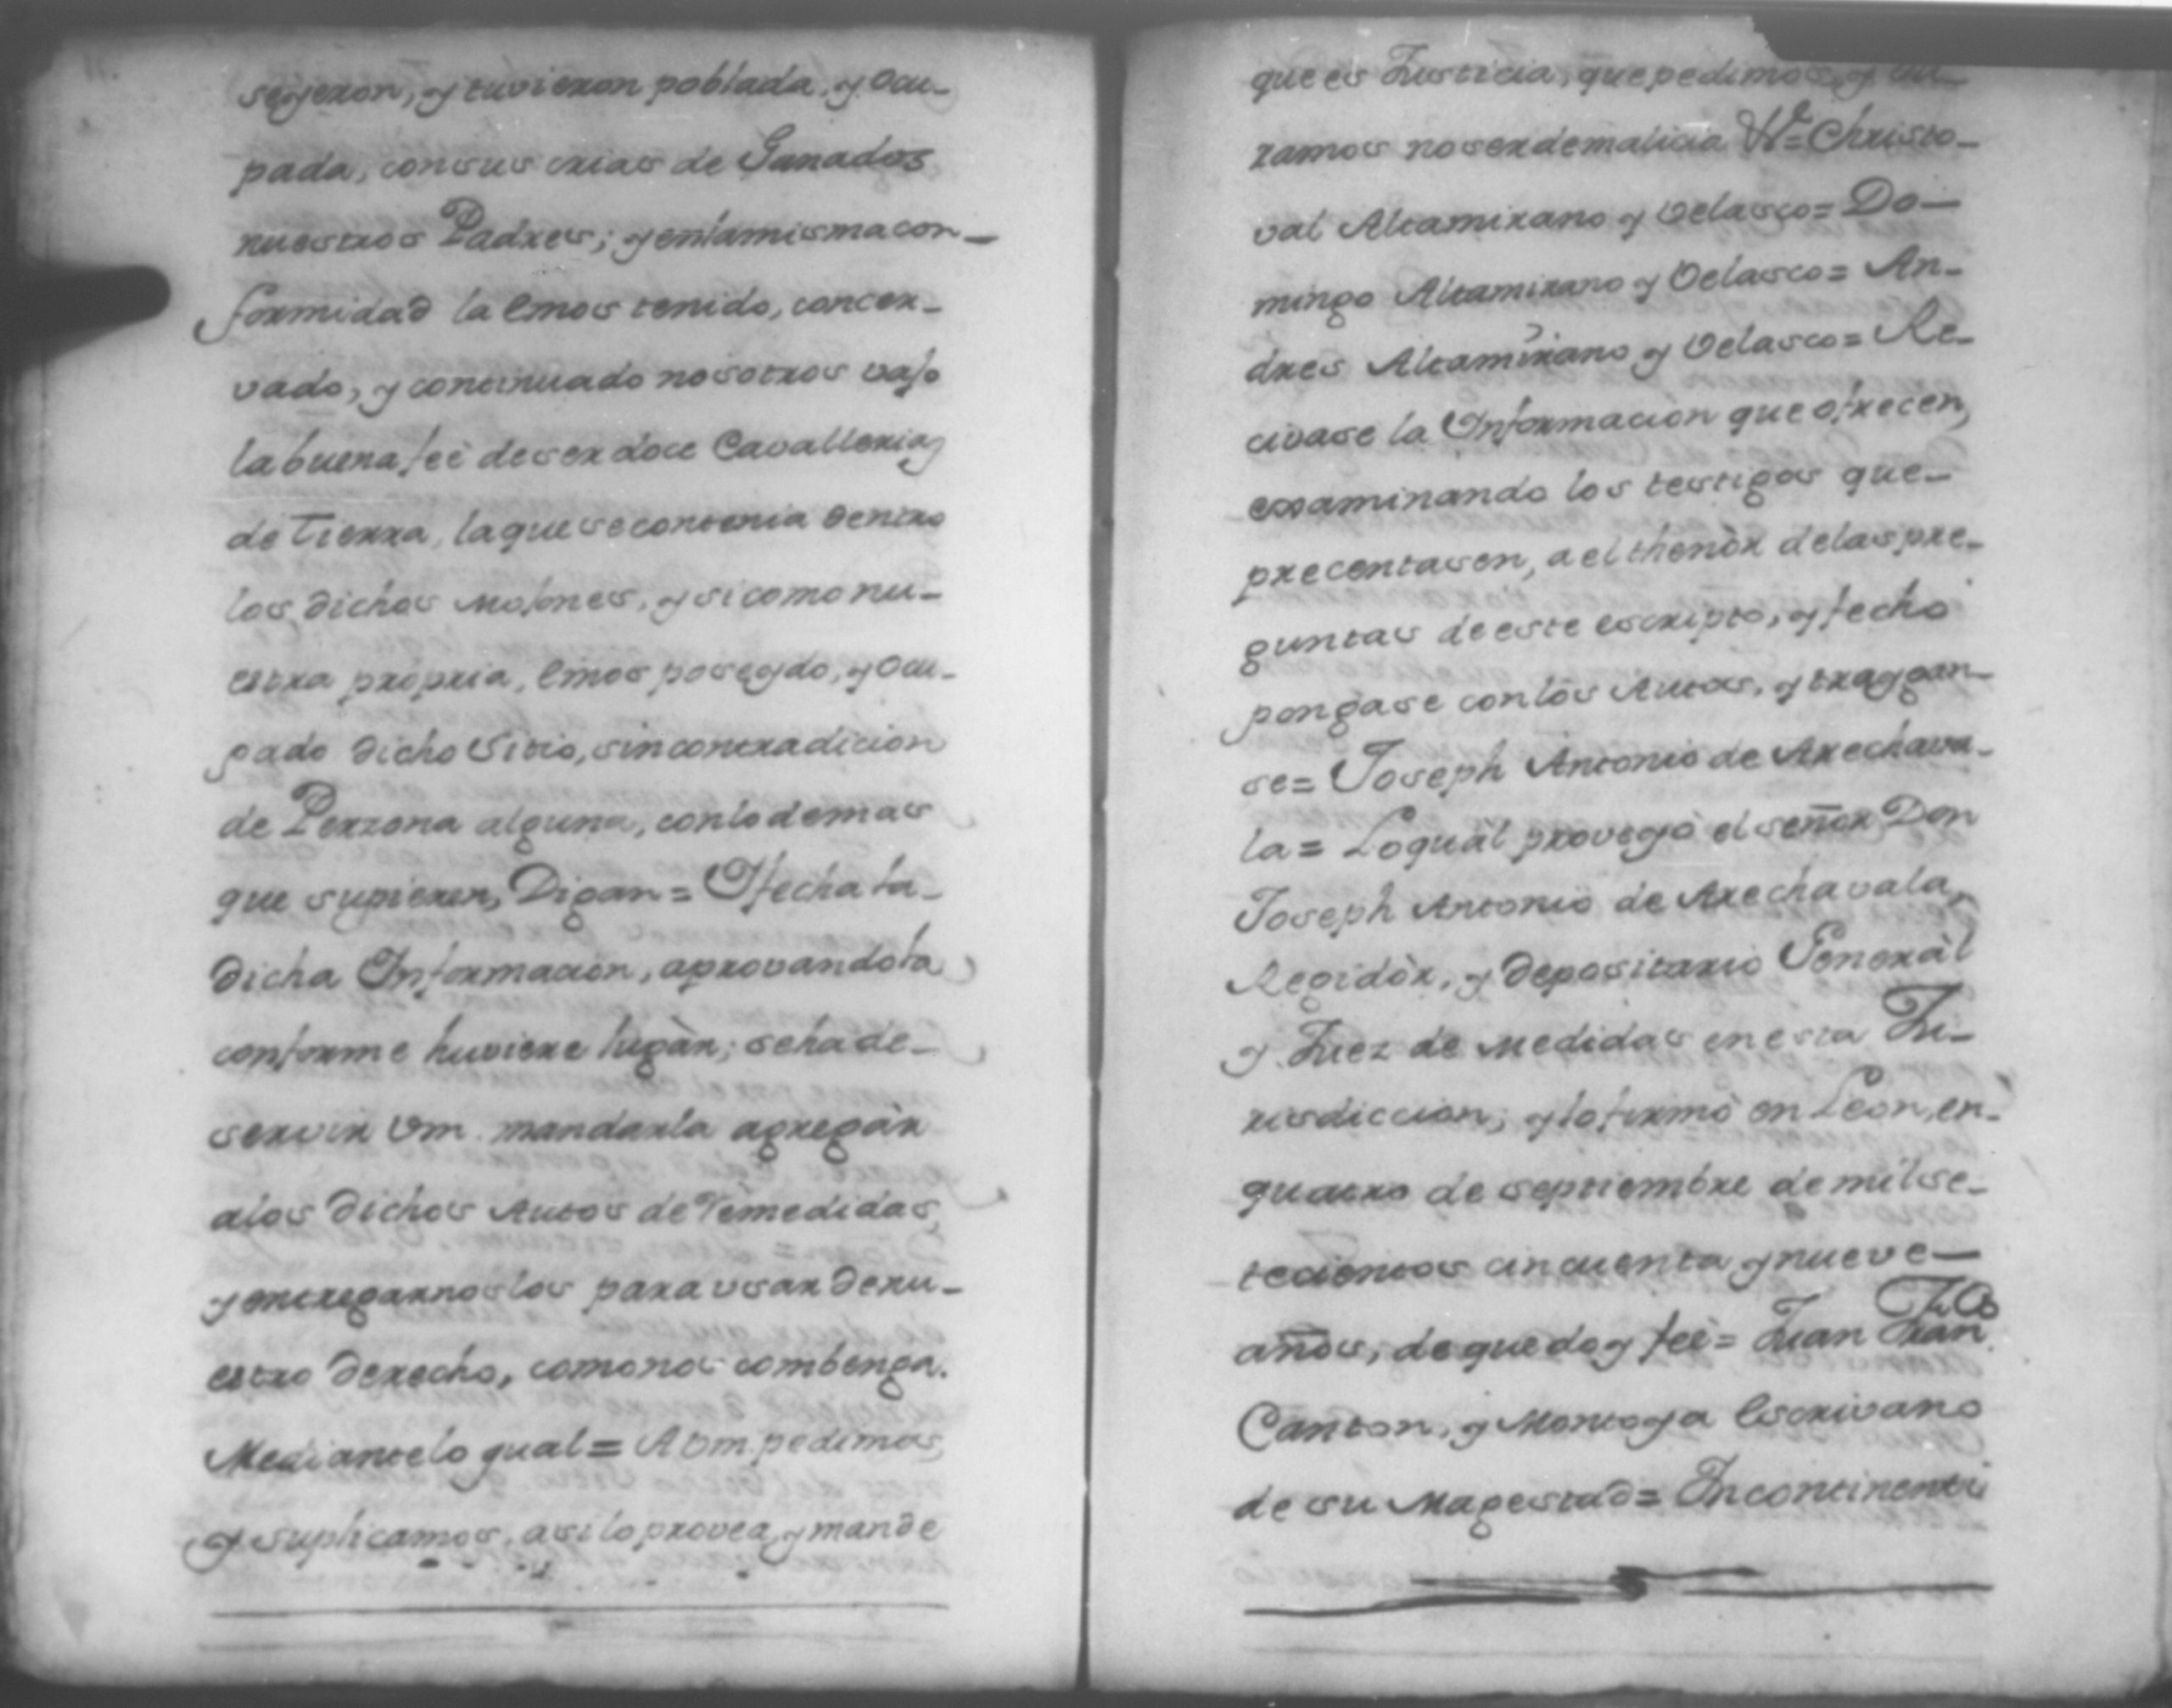 seyeron, y tuvieron poblada, y Ocu-
pada, con sus crias de Ganados
nuestros Padres; y en la misma con-
formidad la emos tenido, concer-
vado, y continuado nosotros vajo
la buena feè de ser doce Cavallerias
de Tierra, la que se contenia dentro
los dichos Mojones, y si como nu-
estra pròpria, emos poseydo, y Ocu-
pado dicho Sitio, sin contradicion
de Perzona alguna, con lo demas
que supieren, Digan = Y fecha la-
dicha Informacion, aprovandola
conforme huviere lugàr; se ha de-
servir Vm. mandarla agregàr
a los dichos Autos de Remedidas,
y entregarnoslos para usar de nu-
estro derecho, como nos combenga.
Mediante lo qual = A Vm. pedimos,
y suplicamos, asi lo provea, y mande
que es Justicia, que pedimos, y Ju-
ramos no ser de malicia Vª = Christo-
val Altamirano y Velasco = Do-
mingo Altamirano y Velasco = An-
dres Altamirano y Velasco = Re-
civase la Informacion que ofrecen,
exsaminando los testigos que-
precentasen, a el thenòr de las pre-
guntas de este escripto, y fecho
pongase con los Autos, y traygan-
se = Joseph Antonio de Arechava-
la = Lo qual proveyò el señor Don
Joseph Antonio de Arechavala,
Regidòr, y Depositario Generàl
y Juez de Medidas en esta Ju-
risdiccion; y lo firmò en Leon, en-
quatro de septiembre de mil se-
tecientos cincuenta y nueve-
años, de que doy feè = Juan Fran.co
Canton, y Montoya Escrivano
de su Magestad = Incontinenti